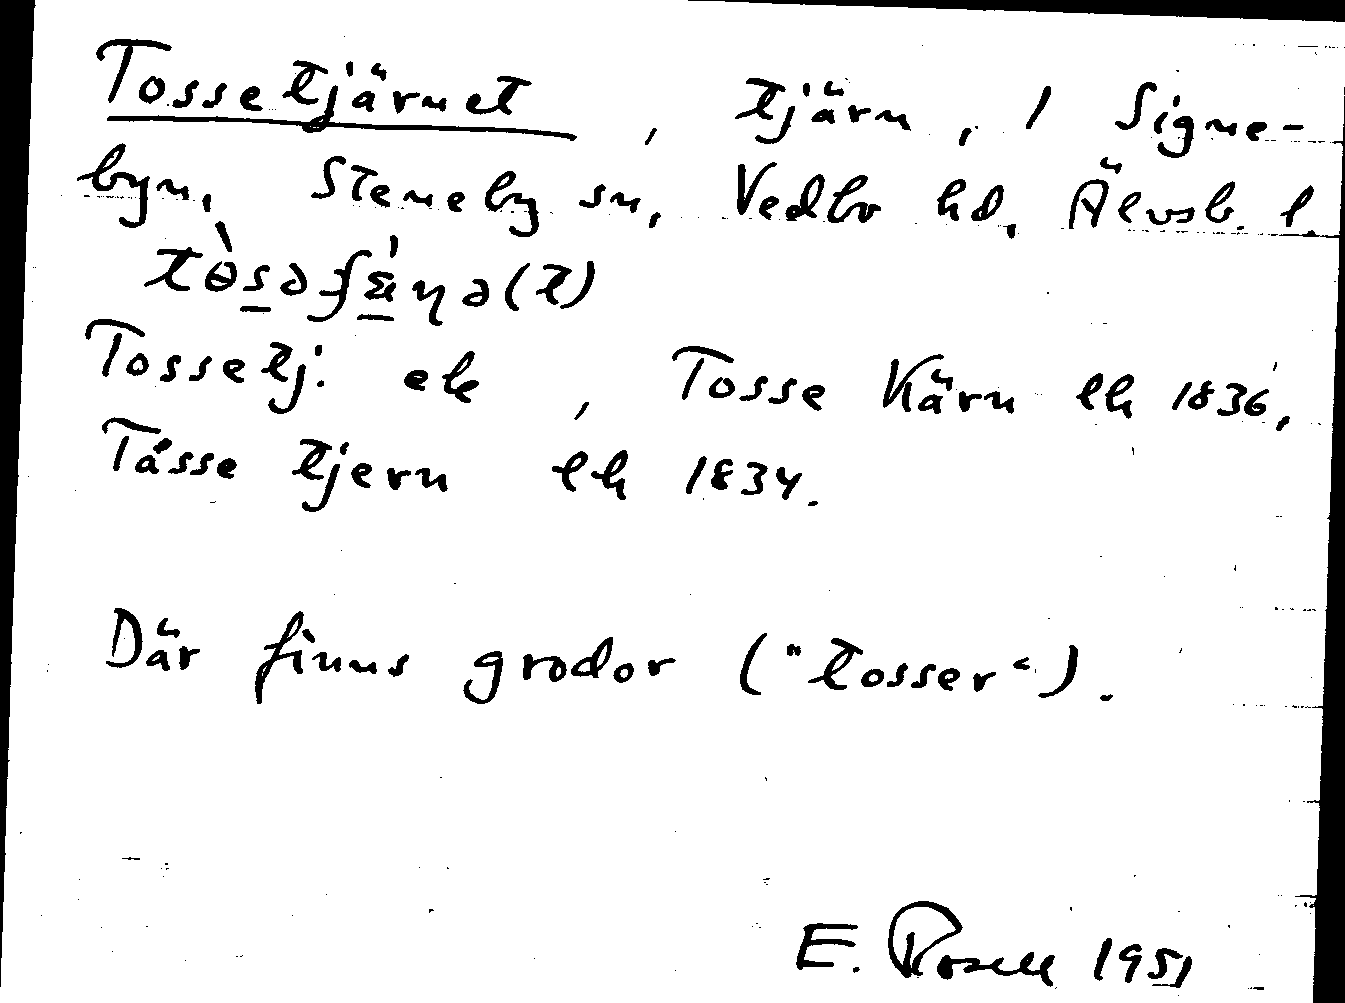 Tossetjärnet, tjärn, 1 Signe-
byn, Steneby sn, Vedbo hd, Älvsb. l.
Tossetj. ek, Tosse Kärn lh 1836,
Tåsse tjern lh 1834.
Där finns grodor ("tosser").
E. Rosell 1951